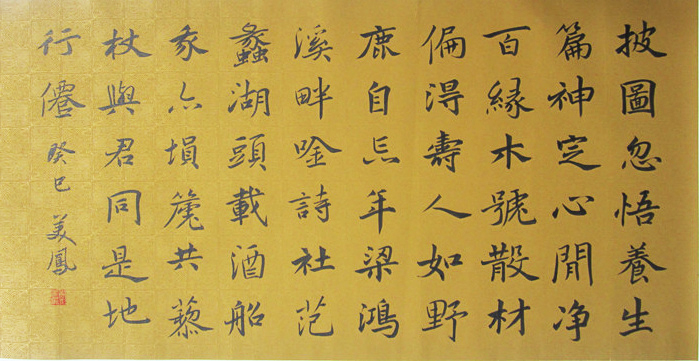 披圖忽悟養生
篇神定心閒净
百緣木號散材
偏得壽人如野
鹿自忘年梁鴻
溪畔唫詩社范
蠡湖頭載酒船
亦塤篪共藜
杖與君同是地
行僊癸巳美鳳